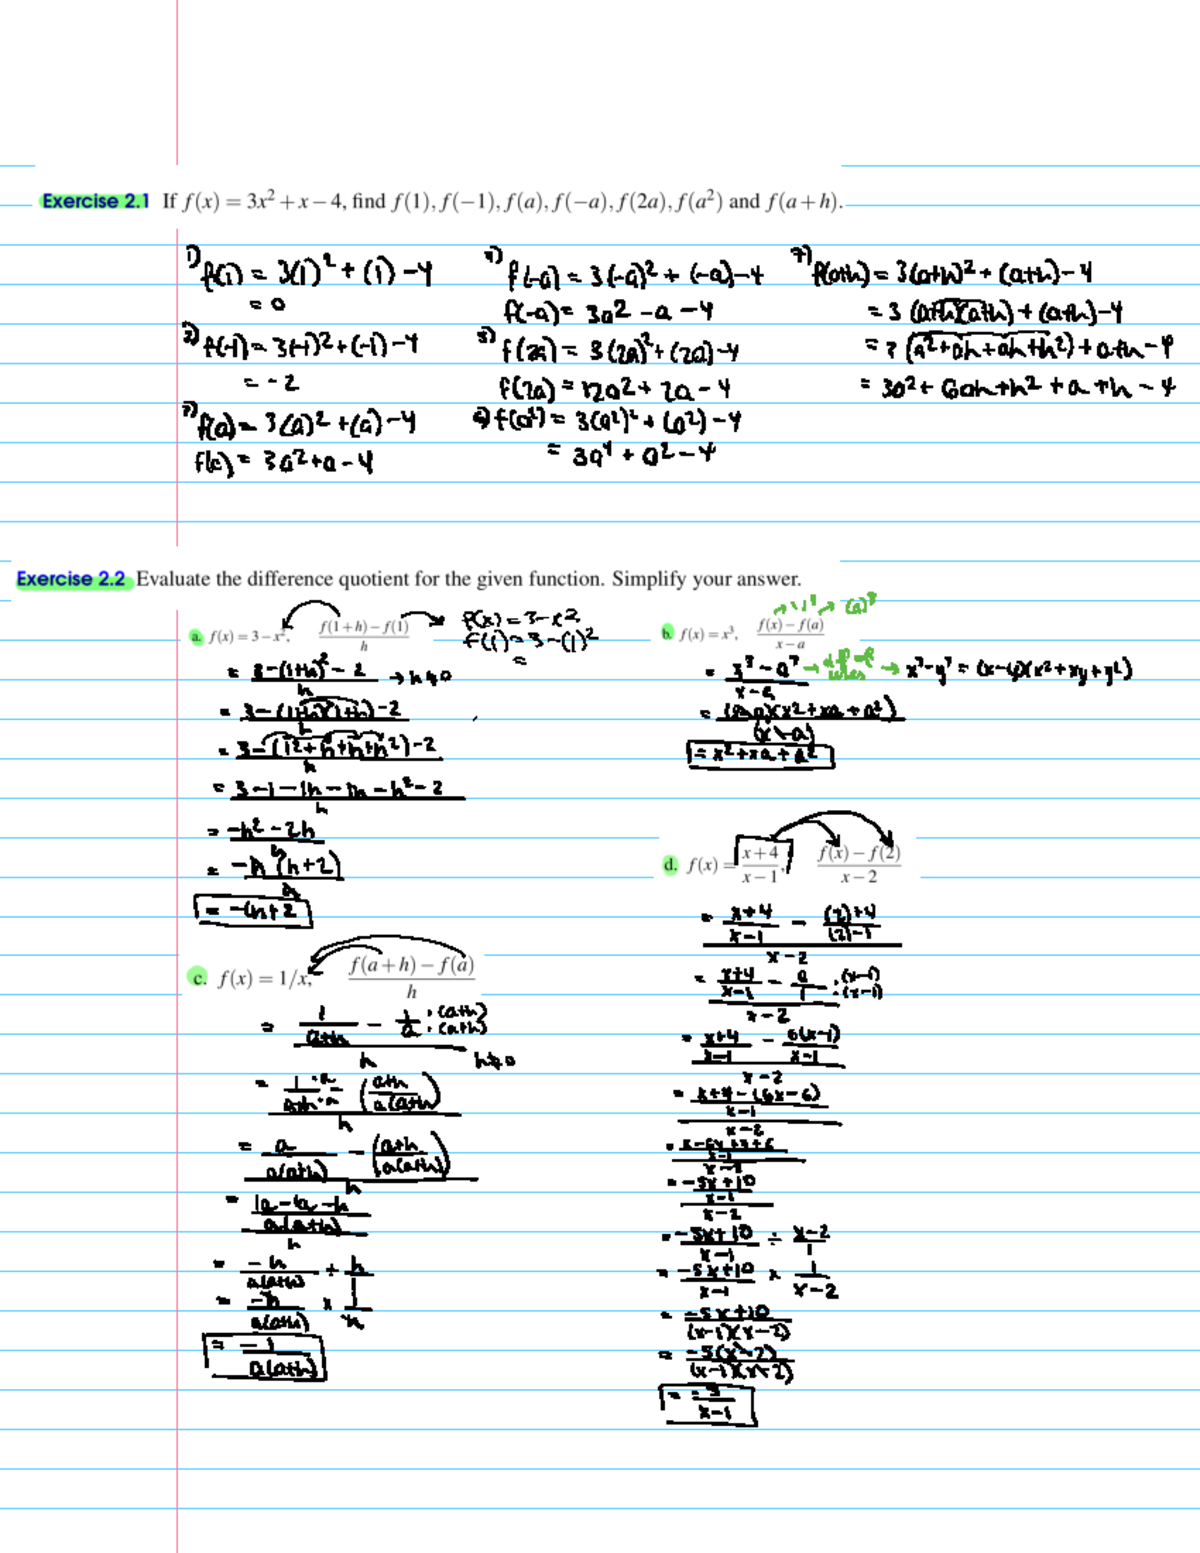 Exercise 2.1 If f(x) = 3x² + x − 4, find f(1), f(−1), f(a), f(−a), f(2a), f(a²) and f(a+h).
1) f(1) = 3(1)² + (1) − 4
= 0
2) f(-1) = 3(-1)² + (-1) − 4
= -2
f(a) = 3(a)² + (a) − 4
f(a) = 3a² + a − 4
f(-a) = 3(-a)² + (-a) − 4
f(-a) = 3a² − a − 4
5) f(2a) = 3(2a)² + (2a) − 4
f(2a) = 12a² + 2a − 4
f(a²) = 3(a²)² + (a²) − 4
= 3a⁴ + a² − 4
7) f(a+h) = 3(a+h)² + (a+h) − 4
= 3(a+h)(a+h) + (a+h) − 4
= (a² + ah + ah + h²) + a+h − 4
= 3a² + 6ah + h² + a + h − 4
Exercise 2.2 Evaluate the difference quotient for the given function. Simplify your answer.
a. f(x) = 3 − x², f(1+h) − f(1) / h
f(x) = 3 − x²
f(1) = 3 − (1)²
=
= 3 − (1+h)² − 2 / h → h ≠ 0
= 3 − (1+h)(1+h) − 2 / h
= 3 − (1² + h + h + h²) − 2 / h
= 3 − 1 − 1h − 1h − h² − 2 / h
= −h² − 2h / h
= −h (h+2) / h
= −(h+2
b. f(x) = x³, f(x) − f(a) / x − a
(a)³
= − a³ / x − a → x³ − y³ = (x − y)(x² + xy + y²)
= (x − a)(x² + xa + a²) / (x − a)
= x² + xa + a²
c. f(x) = 1/x, f(a+h) − f(a) / h
= 1 / a+h − 1 / a · (a+h) / (a+h)
h h ≠ 0
= 1 · a / a+h · a − (a+h / a(a+h)) / h
= a / a(a+h) − (a+h / a(a+h)) / h
= 1a − 1a − h / a(a+h) / h
= −h / a(a+h) ÷ h / 1
= −h / a(a+h) × 1 / h
= −1 / a(a+h)
d. f(x) = x+4 / x−1, f(x) − f(2) / x − 2
= x+4 / x−1 − (2)+4 / (2)−1
x − 2
= x+4 / x−1 − / 1 · (x−1) / (x−1)
x − 2
= x+4 / x−1 − 6(x−1) / x−1
x − 2
= x+4 − (6x−6) / x−1
x − 2
= x − 6x + 4 + 6 / x−1
x − 2
= −5x + 10 / x−1
x − 2
= −5x + 10 / x−1 ÷ x−2 / 1
= −5x + 10 / x−1 × 1 / x−2
= −5x + 10 / (x−1)(x−2)
= −5(x−2) / (x−1)(x−2)
= −5 / x−1